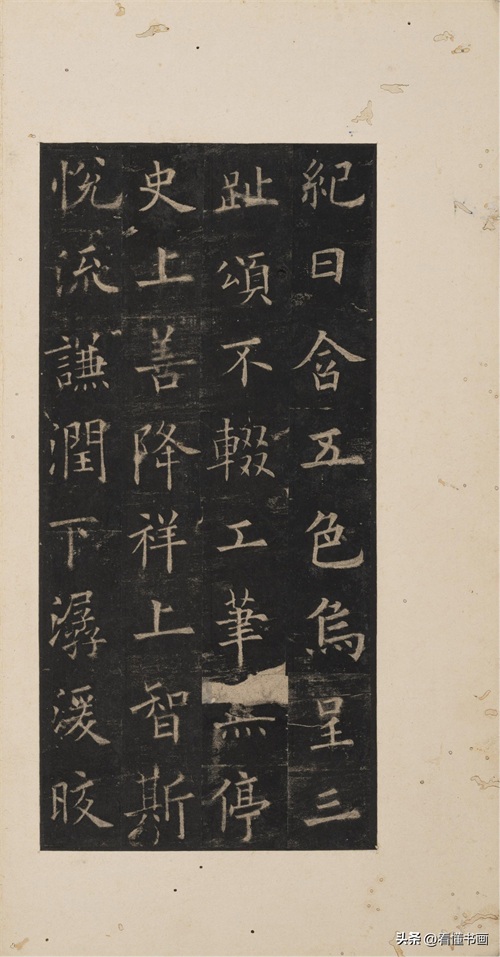 紀日含五色烏呈三
趾頌不輟工筆無停
史上善降祥上智斯
悅流謙潤下潺湲晈
头条 @看懂书画